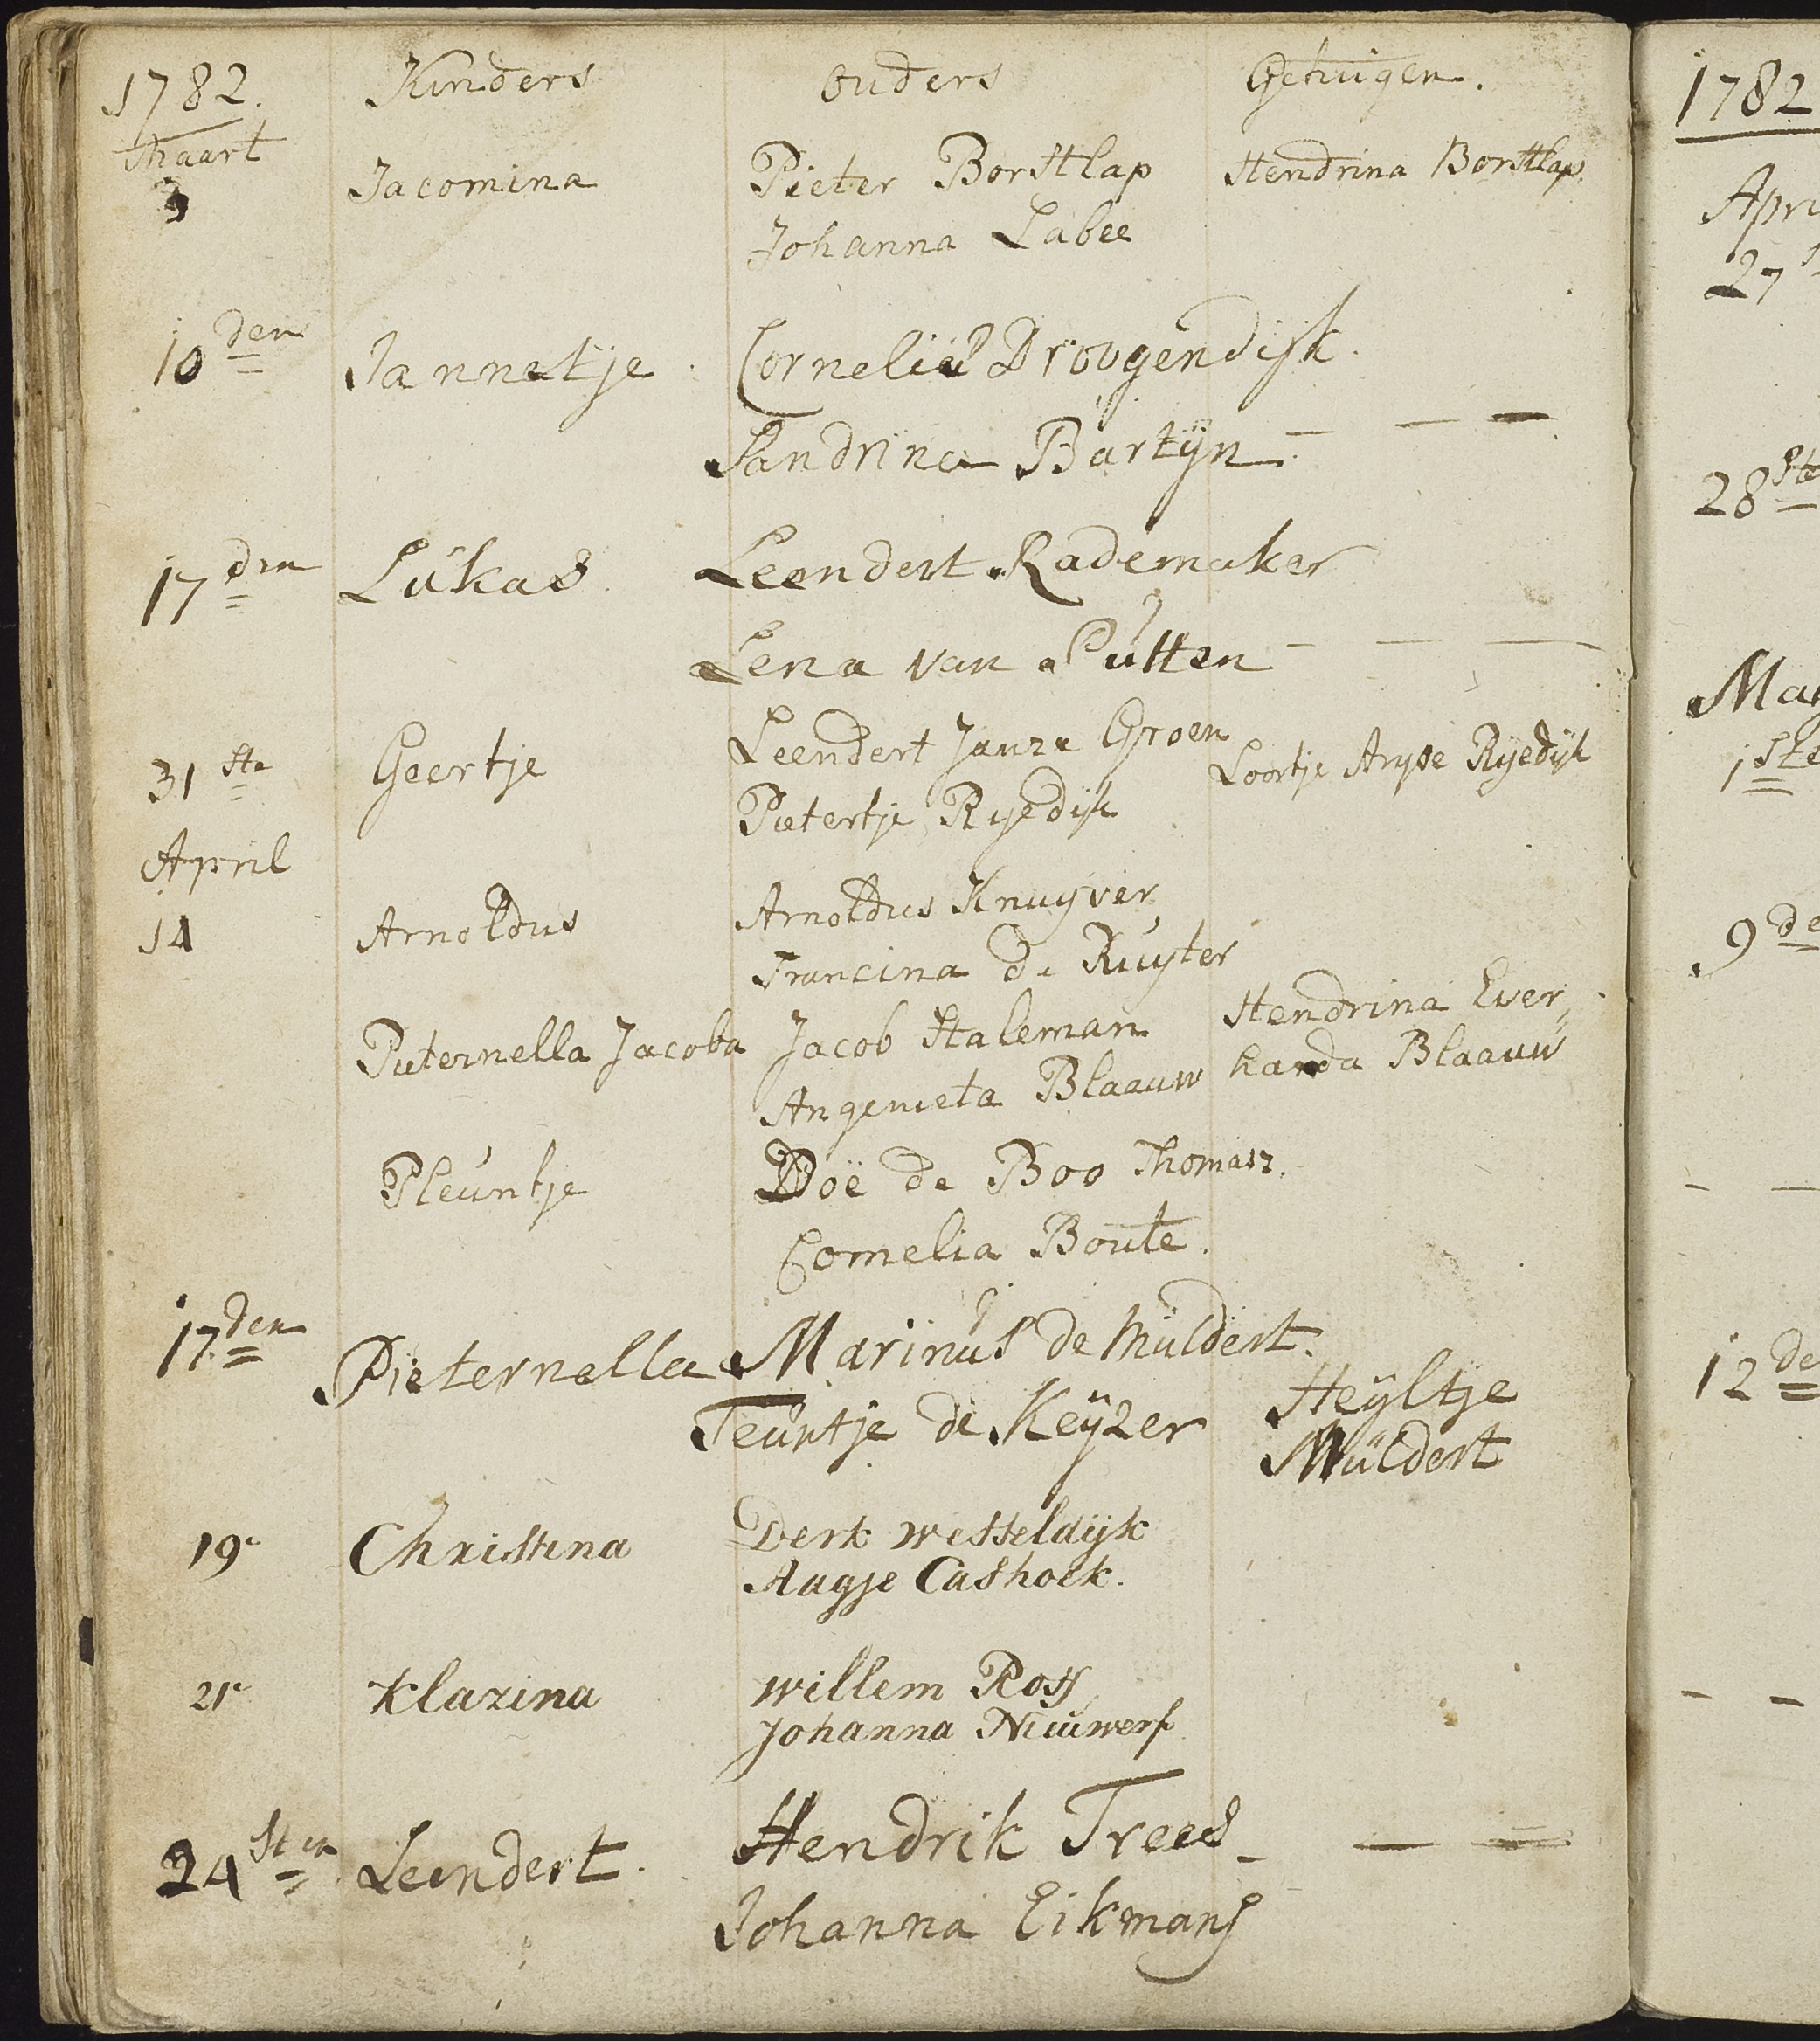 1782. Kinders ouders Getuigen.
Maart
3 Jacomina Pieter Borstlap Hendrina Borstlap
Johanna Labee
10 den Jannetje Cornelis Droogendijk.
Sandrina Bartijn - - -
17 den Lukas Leendert Rademaker
Lena van Putten - - -
31 ste Geertje Leendert Janze Groen Loortje Aryse Ryedijk
Pietertje Ryedijk
April
14 Arnoldus Arnoldus Knuyver
Francina de Ruyter
Pieternella Jacoba Jacob Staleman Hendrina Ever„
Angenieta Blaauw harda Blaauw
Pleuntje Doë de Boo Thomasz.
Cornelia Boute.
17 den Pieternella Marinus de Muldert.
Teuntje de Keyzer Heyltje
Muldert
19e Christina Derk Wesseldijk
Aagje Cashoek.
21e Klazina Willem Ross
Johanna Nieuwerf
24 sten Leendert. Hendrik Trees - - -
Johanna Eikmans
1782
Apri
27 s
28 ste
1 ste
9 de
- -
12 de
- -